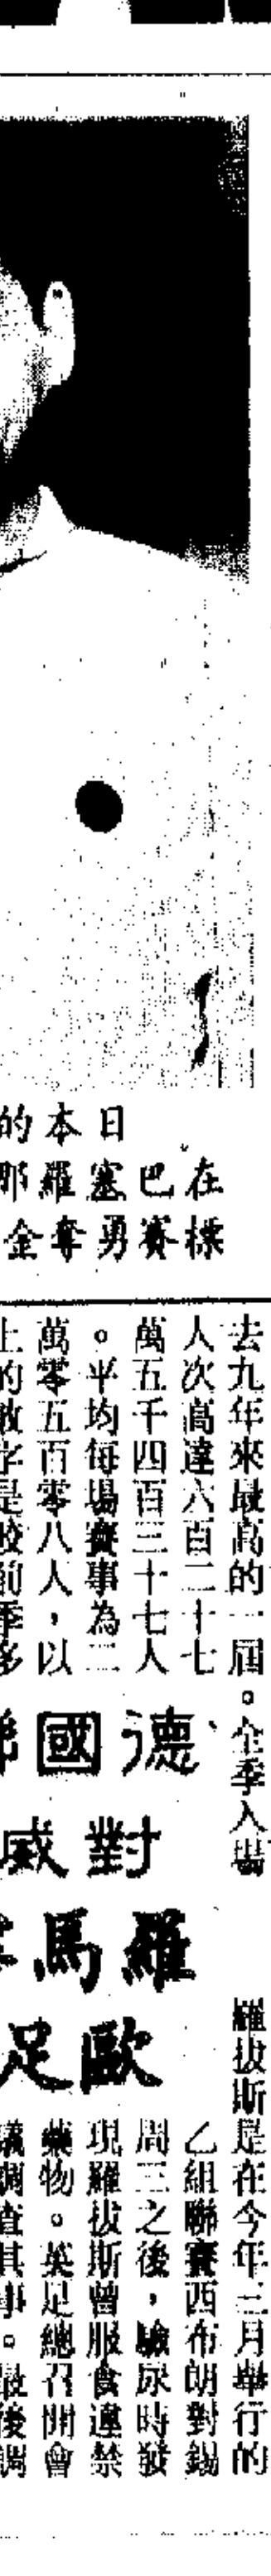 日本的
在巴塞羅那
標賽勇奪金
去九年來最高的一屆。全季入場
人次高達六百二十七
萬五千四百三十七人
。平均每場賽事為二
萬零五百零八人，以
上的數字是較前季多
德國
對威
羅馬
歐足
羅拔斯是在今年三月舉行的
乙組聯賽西布朗對錫
周三之後，驗尿時發
現羅拔斯曾服食違禁
藥物。英足總召開會
議調查其事。最後調